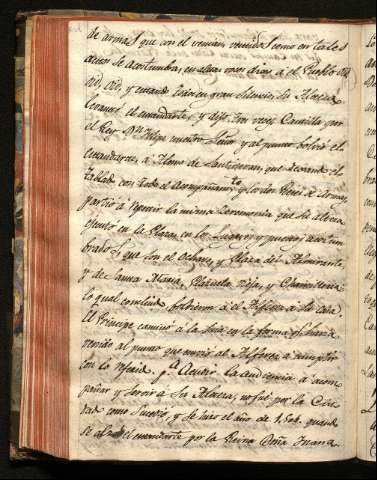 de armas que con el venian venido como en tales
actos se acostumbra, en altas voces dixo á el Pueblo oid
oid, oid, y estando todo en gran silencio, Su Alteza
levantó el estandarte, y dijo tres veces Castilla por
el Rey Dn. Felipe nuestro Señor y al punto bolvió el
estandarte, á Alonso de que dexando el
tablado con todo el Acompañamto. y los dos Reies de Armas
partió á repetir la misma Ceremonia que Su Alteza
ejecutó en la Plaza, en los Lugares y puestos acostum
brados que son el Ochavo, y Plaza del Almirante
y de Santa Maria, Plazuela Vieja, y Chancilleria
lo qual concluido, bolvieron á el á Su Casa.
El Principe caminó á la Suia en la forma qe. havia
venido al punto que Su Alteza á cumplido
con lo referido. pa. Acudir la audiencia á acom
pañar y servir á Su Alteza, no fue por la Ciu
dad como Suería, y se hizo el año de 1.504. quando
se alzó el estandarte por la Reina Doña Juana